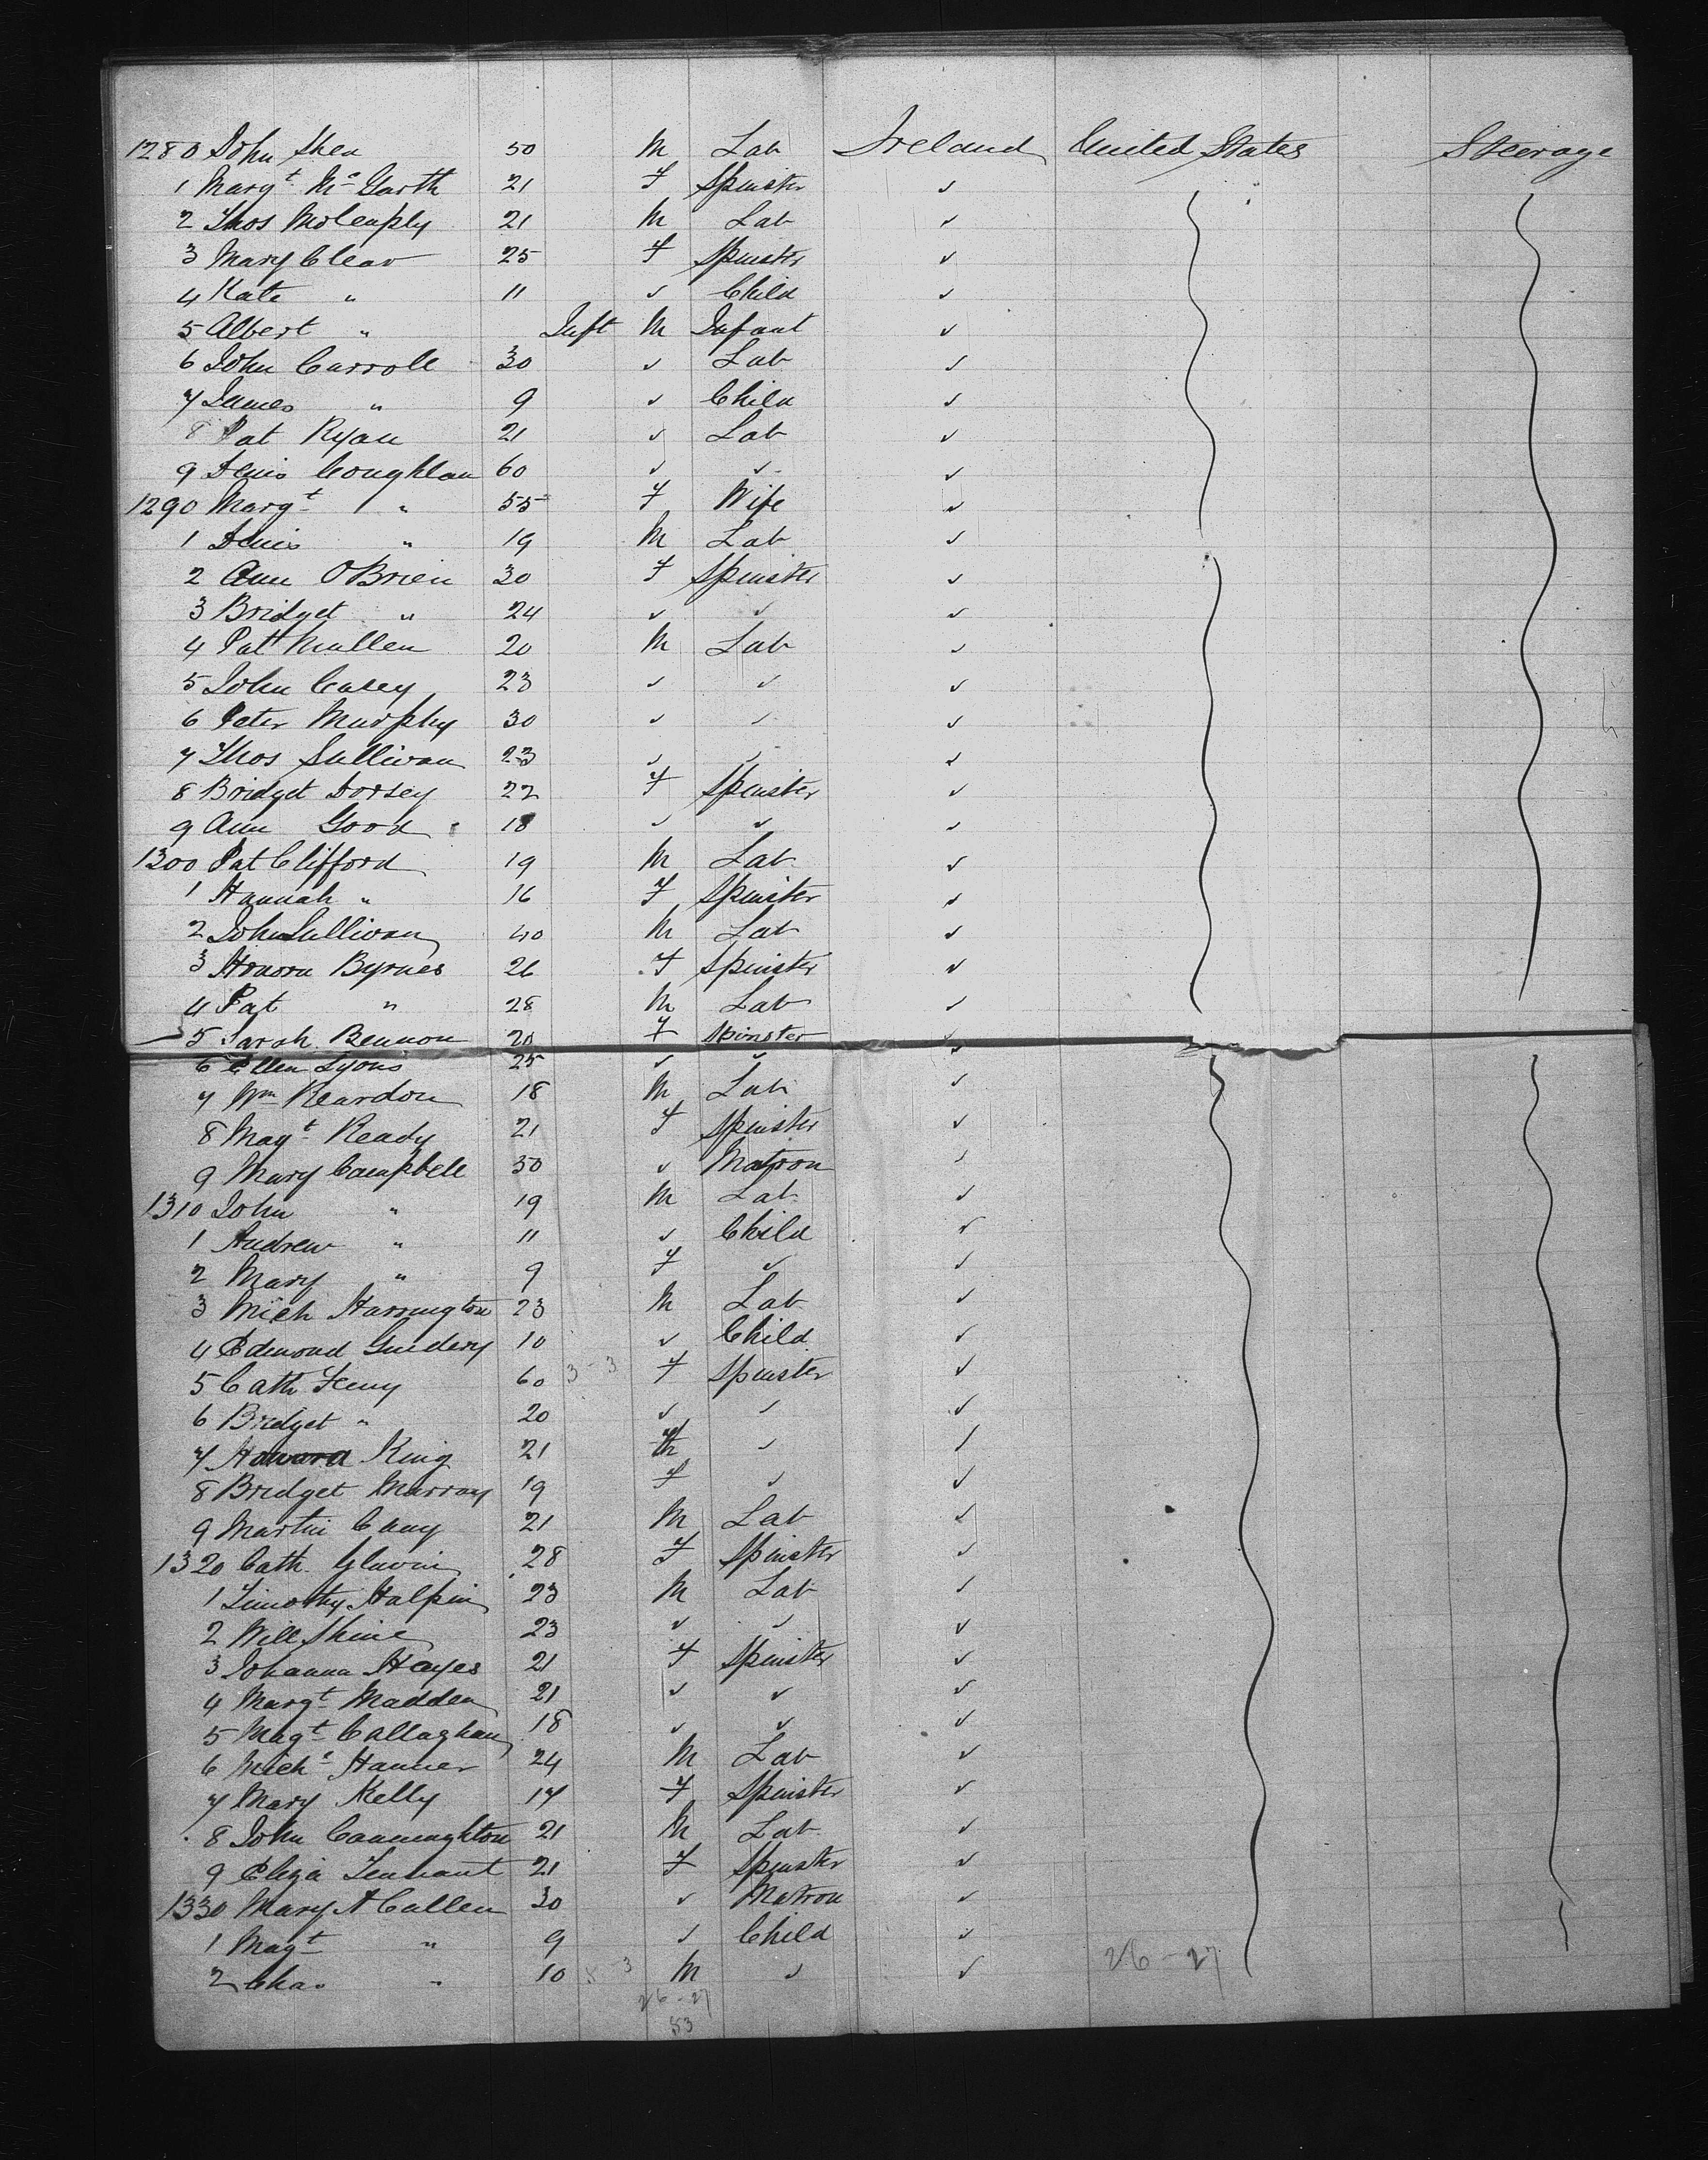 1280 John Shea 50 M Lab Ireland United States Steerage
1 Margt McGarth 21 F Spinster ✓
2 Thos 21 M Lab ✓
3 Mary Clear 25 F Spinster ✓
4 Kate " 11 ✓ Child ✓
5 Albert " Inft M Infant ✓
6 John Carroll 30 ✓ Lab ✓
7 James " 9 ✓ Child ✓
8 Pat Ryan 21 ✓ Lab ✓
9 Denis Coughlan 60 ✓ ✓ ✓
1290 Margt " 55 F Wife ✓
1 Denis " 19 M Lab ✓
2 Ann O'Brien 30 F Spinster ✓
3 Bridget " 24 ✓ ✓ ✓
4 Pat Mullen 20 M Lab ✓
5 John Casey 23 ✓ ✓ ✓
6 Peter Murphy 30 ✓ ✓ ✓
7 Thos Sullivan 23 ✓ ✓ ✓
8 Bridget Dorsey 22 F Spinster ✓
9 Ann Good 18 ✓ ✓ ✓
1300 Pat Clifford 19 M Lab ✓
1 Hannah " 16 F Spinster ✓
2 John Sullivan 40 M Lab ✓
3 Honora Byrnes 26 F Spinster ✓
4 Pat " 28 M Lab ✓
5 Sarah Bennon 20 F Spinster ✓
6 Ellen Lyons 25 ✓ ✓ ✓
7 Wm Reardon 18 M Lab ✓
8 Magt Ready 21 F Spinster ✓
9 Mary Campbell 50 ✓ Matron ✓
1310 John " 19 M Lab ✓
1 Andrew " 11 ✓ Child ✓
2 Mary " 9 F ✓ ✓
3 Mich Harrington 23 M Lab ✓
4 Edmond 10 ✓ Child ✓
5 Cath Feny 60 3-3 F Spinster ✓
6 Bridget " 20 ✓ ✓ ✓
7 King 21 ✓ ✓
8 Bridget Murray 19 F ✓ ✓
9 Martin Cany 21 M Lab ✓
1320 Cath. Glavin 28 F Spinster ✓
1 Timothy Halpin 23 M Lab ✓
2 Will Shine 23 ✓ ✓ ✓
3 Johanna Hayes 21 F Spinster ✓
4 Margt Madden 21 ✓ ✓ ✓
5 Magt Callaghan 18 ✓ ✓ ✓
6 Michl Hanner 24 M Lab ✓
7 Mary Kelly 17 F Spinster ✓
8 John Cannughton 21 M Lab ✓
9 Eliza Tennant 21 F Spinster ✓
1330 Mary A Cullen 30 ✓ Matron ✓
1 Magt " 9 ✓ Child ✓
2 Chas " 10 M ✓ ✓ 26-27
26-27
53